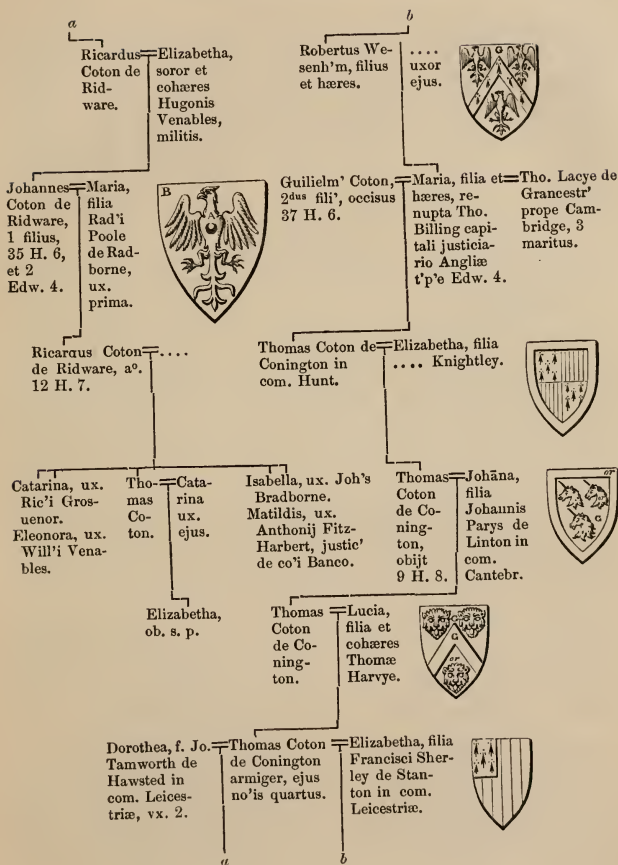 a
b
Ricardus
Coton de
Rid-
ware.
Elizabetha,
soror et
cohæres
Hugonis
Venables,
militis.
Robertus We-
senh'm, filius
et hæres.
....
uxor
ejus.
G
Johannes
Coton de
Ridware,
1 filius,
35 H. 6,
et 2
Edw. 4.
Maria,
filia
Rad'i
Poole
de Rad-
borne,
ux.
prima.
B
A
Guilielm' Coton,
2dus fili', occisus
37 H. 6.
Maria, filia et
hæres, re-
nupta Tho.
Billing capi-
tali justicia-
rio Angliæ
t'p'e Edw. 4.
Tho. Lacye de
Grancestr'
prope Cam-
bridge, 3
maritus.
Ricardus Coton
de Ridware, ao.
12 H. 7.
....
Thomas Coton de
Conington in
com. Hunt.
Elizabetha, filia
.... Knightley.
Catarina, ux.
Ric'i Gros-
uenor.
Eleonora, ux.
Will'i Vena-
bles.
Tho-
mas
Co-
ton.
Cata-
rina
ux.
ejus.
Isabella, ux. Joh's
Bradborne.
Matildis, ux.
Anthonij Fitz-
Harbert, justic'
de co'i Banco.
Thomas
Coton
de Co-
ning-
ton,
obijt
9 H. 8.
Johāna,
filia
Johannis
Parys de
Linton in
com.
Cantebr.
or
G
Elizabetha,
ob. s. p.
Thomas
Coton
de Co-
ning-
ton.
Lucia,
filia et
cohæres
Thomæ
Harvye.
G
G
or
Dorothea, f. Jo.
Tamworth de
Hawsted in
com. Leices-
triæ, vx. 2.
Thomas Coton
de Conington
armiger, ejus
no'is quartus.
Elizabetha, filia
Francisci Sher-
ley de Stan-
ton in com.
Leicestriæ.
a
b